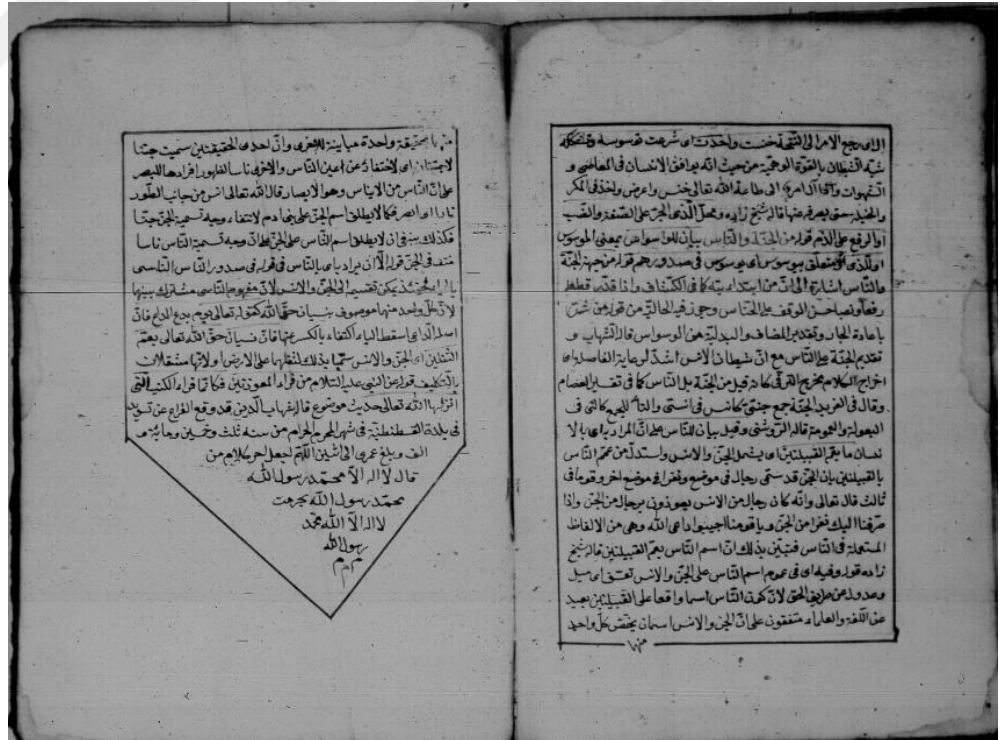 الذى رجع الامر الى النتيجة خنست واخذت اى شرعت توسوسه وتشككه
شبه الشيطان بالقوة الوهمية من حيث انه يوافق الانسان فى المعاصى و
الشهوات واذا الى طاعة الله تعالى خنس واعرض واخذ فى المكر
والحيلة حتى يصرفه عنها قاله شيخ زاده ومحل الذى الجر على الصفة والنصب
او الرفع على الذم قوله من الجنة والناس بيان للوسواس بمعنى الموسوس
او للذى او متعلق بيوسوس اى يوسوس فى صدورهم قوله من جهة الجنة
والناس اشارة الى ان من ابتدائية كما فى الكشاف واذا قطعا
رفعا ونصبا حسن الوقف على الخناس وجوز فيه الحالية من قوله من شر
باعادة الجار وتقدير المضاف والبدلية من الوسواس قاله الشهاب و
تقديم الجنة على الناس مع ان شيطان الانس اشد لرعاية الفاصلة اى
اخراج الكلام مخرج الترقى كانه قيل من الجنة بل الناس كما فى تفسير العصام
وقال فى الفريد الجنة جمع جنى كانس فى انسى والتاء للجمع كالتى فى
البعولة والعمومة قاله الروشنى وقيل بيان للناس على ان المراد اى بالا
نسان ما يعم القبيلتين اى يشمل الجن والانس واستدل من عمم الناس
بالقبيلتين بان الجن قد سمى رجالا فى موضع ونفرا فى موضع اخر وقوما فى
ثالث قال تعالى وانه كان رجال من الانس يعوذون برجال من الجن واذا
صرفنا اليك نفرا من الجن ويا قومنا اجيبوا داعى الله وهى من الالفاظ
المستعملة فى الناس فتبين بذلك ان اسم الناس يعم القبيلتين قاله شيخ
زاده قوله وفيه اى فى عموم اسم الناس على الجن والانس تعسف اى ميل
وعدول عن طريق الحق لان كون الناس اسما واقعا على القبيلتين بعيد
عن اللغة والعلماء متفقون على ان الجن والانس اسمان يختص كل واحد
منها
منهما بحقيقة واحدة مباينة للاخرى وان احدى الحقيقتين سميت جنا
لاجتنانها اى لاختفائها عن اعين الناس والاخرى ناسا لظهور افرادها للبصر
على ان الناس من الايناس وهو الابصار قال الله تعالى انس من جانب الطور
نارا اى ابصر فكما لا يطلق اسم الجن على بنى ادم لانتفاء وجه تسمية الجن جنا
فكذلك ينبغى ان لا يطلق اسم الناس على الجن على ان وجه تسمية الناس ناسا
منتف فى الجن قوله الا ان يراد اى بالناس فى قوله فى صدور الناس الناسى
يمكن تقسيمه الى الجن والانس لان مفهوم الناسى مشترك بينهما
لان كل واحد منهما موصوف بنسيان حق الله كقوله تعالى يوم يدع الداع فان
اصله الداعى اسقط الياء اكتفاء بالكسر عنها فان نسيان حق الله تعالى يعم
الثقلين اى الجن والانس سميا بذلك لثقلهما على الارض او لانهما مثقلان
بالتكليف قوله عن النبى عليه السلام من قراء المعوذتين فكانما قراء الكتب التى
انزلها الله تعالى حديث موضوع قاله شهاب الدين قد وقع الفراغ عن تسويد
فى بلدة القسطنطنية فى شهر المحرم الحرام من سنه ثلث وخمسين ومايه و
الف وبلغ عمرى الى اللهم ليجعل اخر كلام من
قال لا اله الا محمد رسول الله
محمد رسول الله بحرمت
لا اله الا الله محمد
رسول الله
م م م